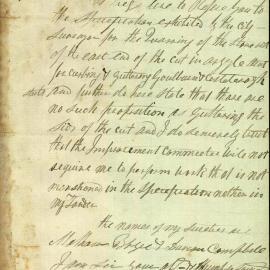 I beg leave to Refer you to
the Specification exhibited by the City
Surveyor for the Quarrying of the Stone out
of the east end of the cut in argyle Street
for curbing & Guttering Goulburn & Castlereagh
and further do here state that there are
no such proposition as Guttering the
Side of the cut and I do sencerely trust
that the Improvement Commettee will not
require me to perform work that is not
menshoned in the Specefication nether in
my Tender
the names of my sureties are
Campbell